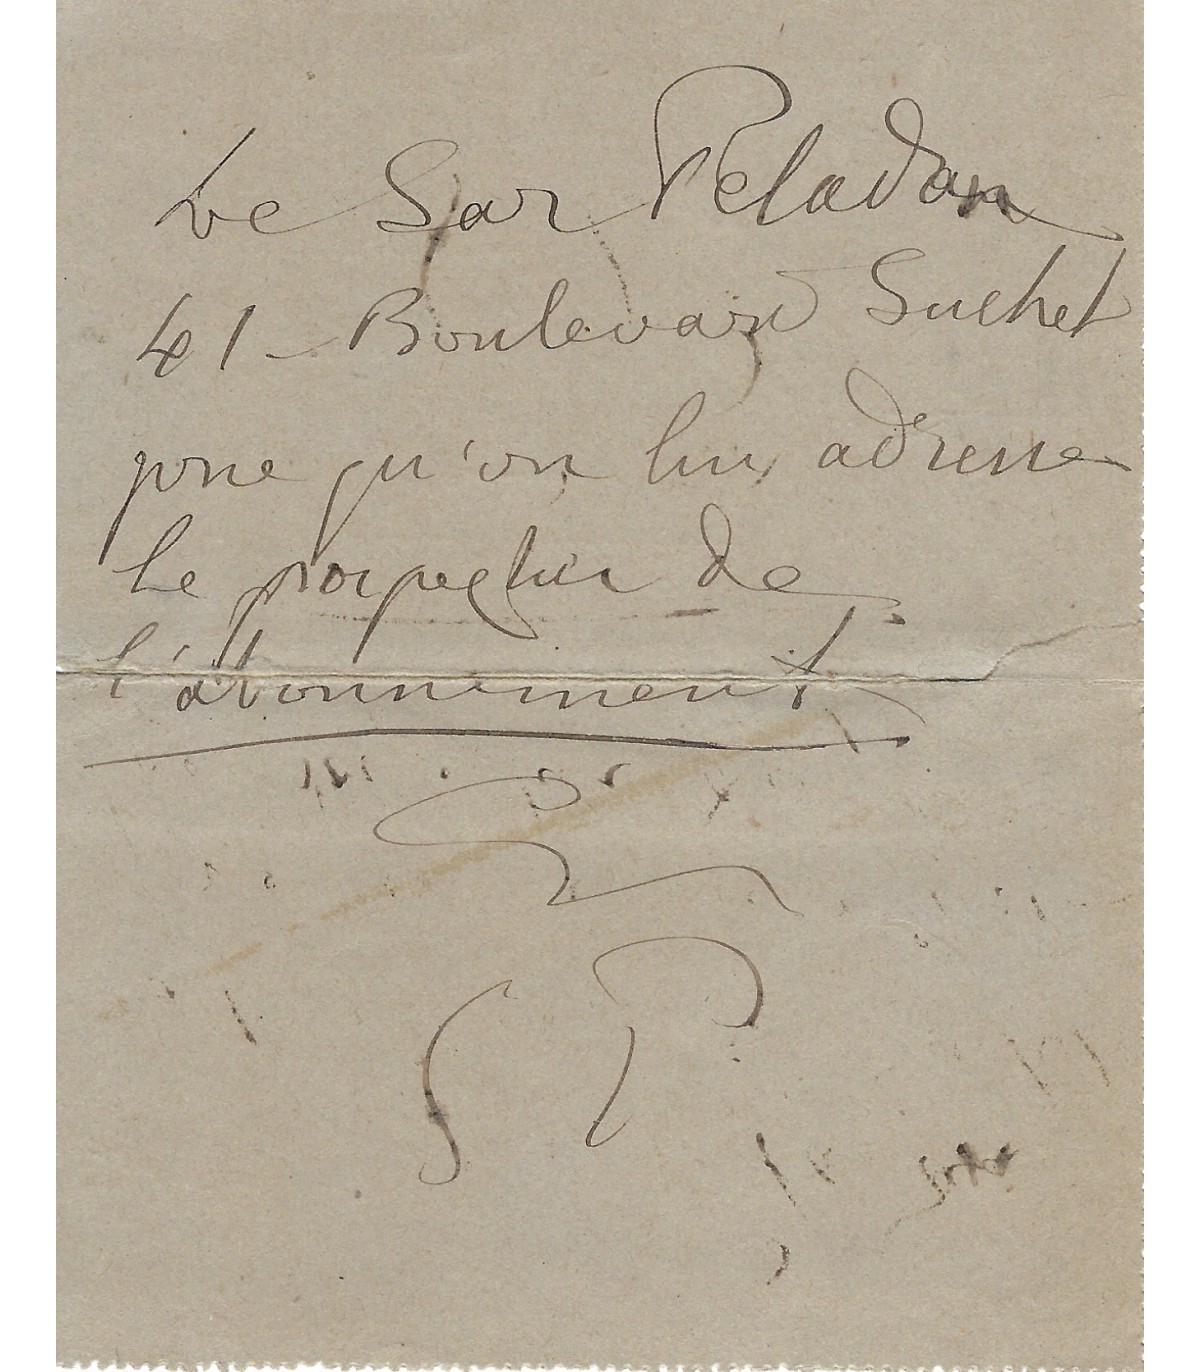 Le Sar Peladan
41 - Boulevard Suchet
prie qu'on lui adresse
le prospectus de
l'abonnement
S P